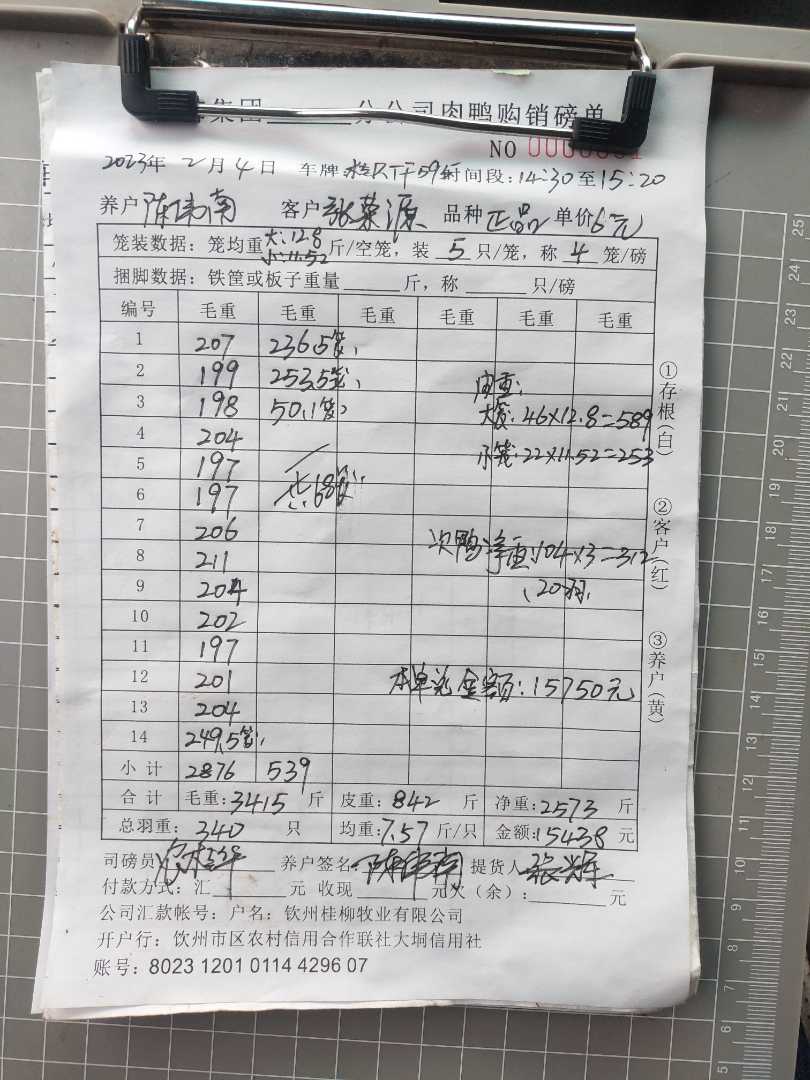 集团 分公司肉鸭购销磅单
NO 0000001
2023年 2月 4日 车牌 时间段:14:30至15:20
养户 陈伟南 客户 张荣源 品种 正品 单价 6元
笼装数据:笼均重 大:12.8 小:11.52 斤/空笼,装 5 只/笼,称 4 笼/磅
捆脚数据:铁筐或板子重量 斤,称 只/磅
编号 毛重 毛重 毛重 毛重 毛重 毛重
1 207 236,5笼,
2 199 253,5笼,
3 198 50,1笼,
4 204
5 197
6 197 共:68笼
7 206
8 211
9 204
10 202
11 197
12 201
13 204
14 249,5笼,
皮重:
大笼:46×12.8=589
小笼:22×11.52=253
次鸭净重:104×3=312
(20羽)
本单总金额:15750元
小计 2876 539
合计 毛重:3415 斤 皮重:842 斤 净重:2573 斤
总羽重: 340 只 均重:7.57 斤/只 金额:15438 元
司磅员 养户签名 陈伟南 提货人 张辉
付款方式:汇 元 收现 元欠(余): 元
公司汇款帐号:户名:钦州桂柳牧业有限公司
开户行:饮州市区农村信用合作联社大垌信用社
账号:8023 1201 0114 4296 07
①存根(白)
②客户(红)
③养户(黄)